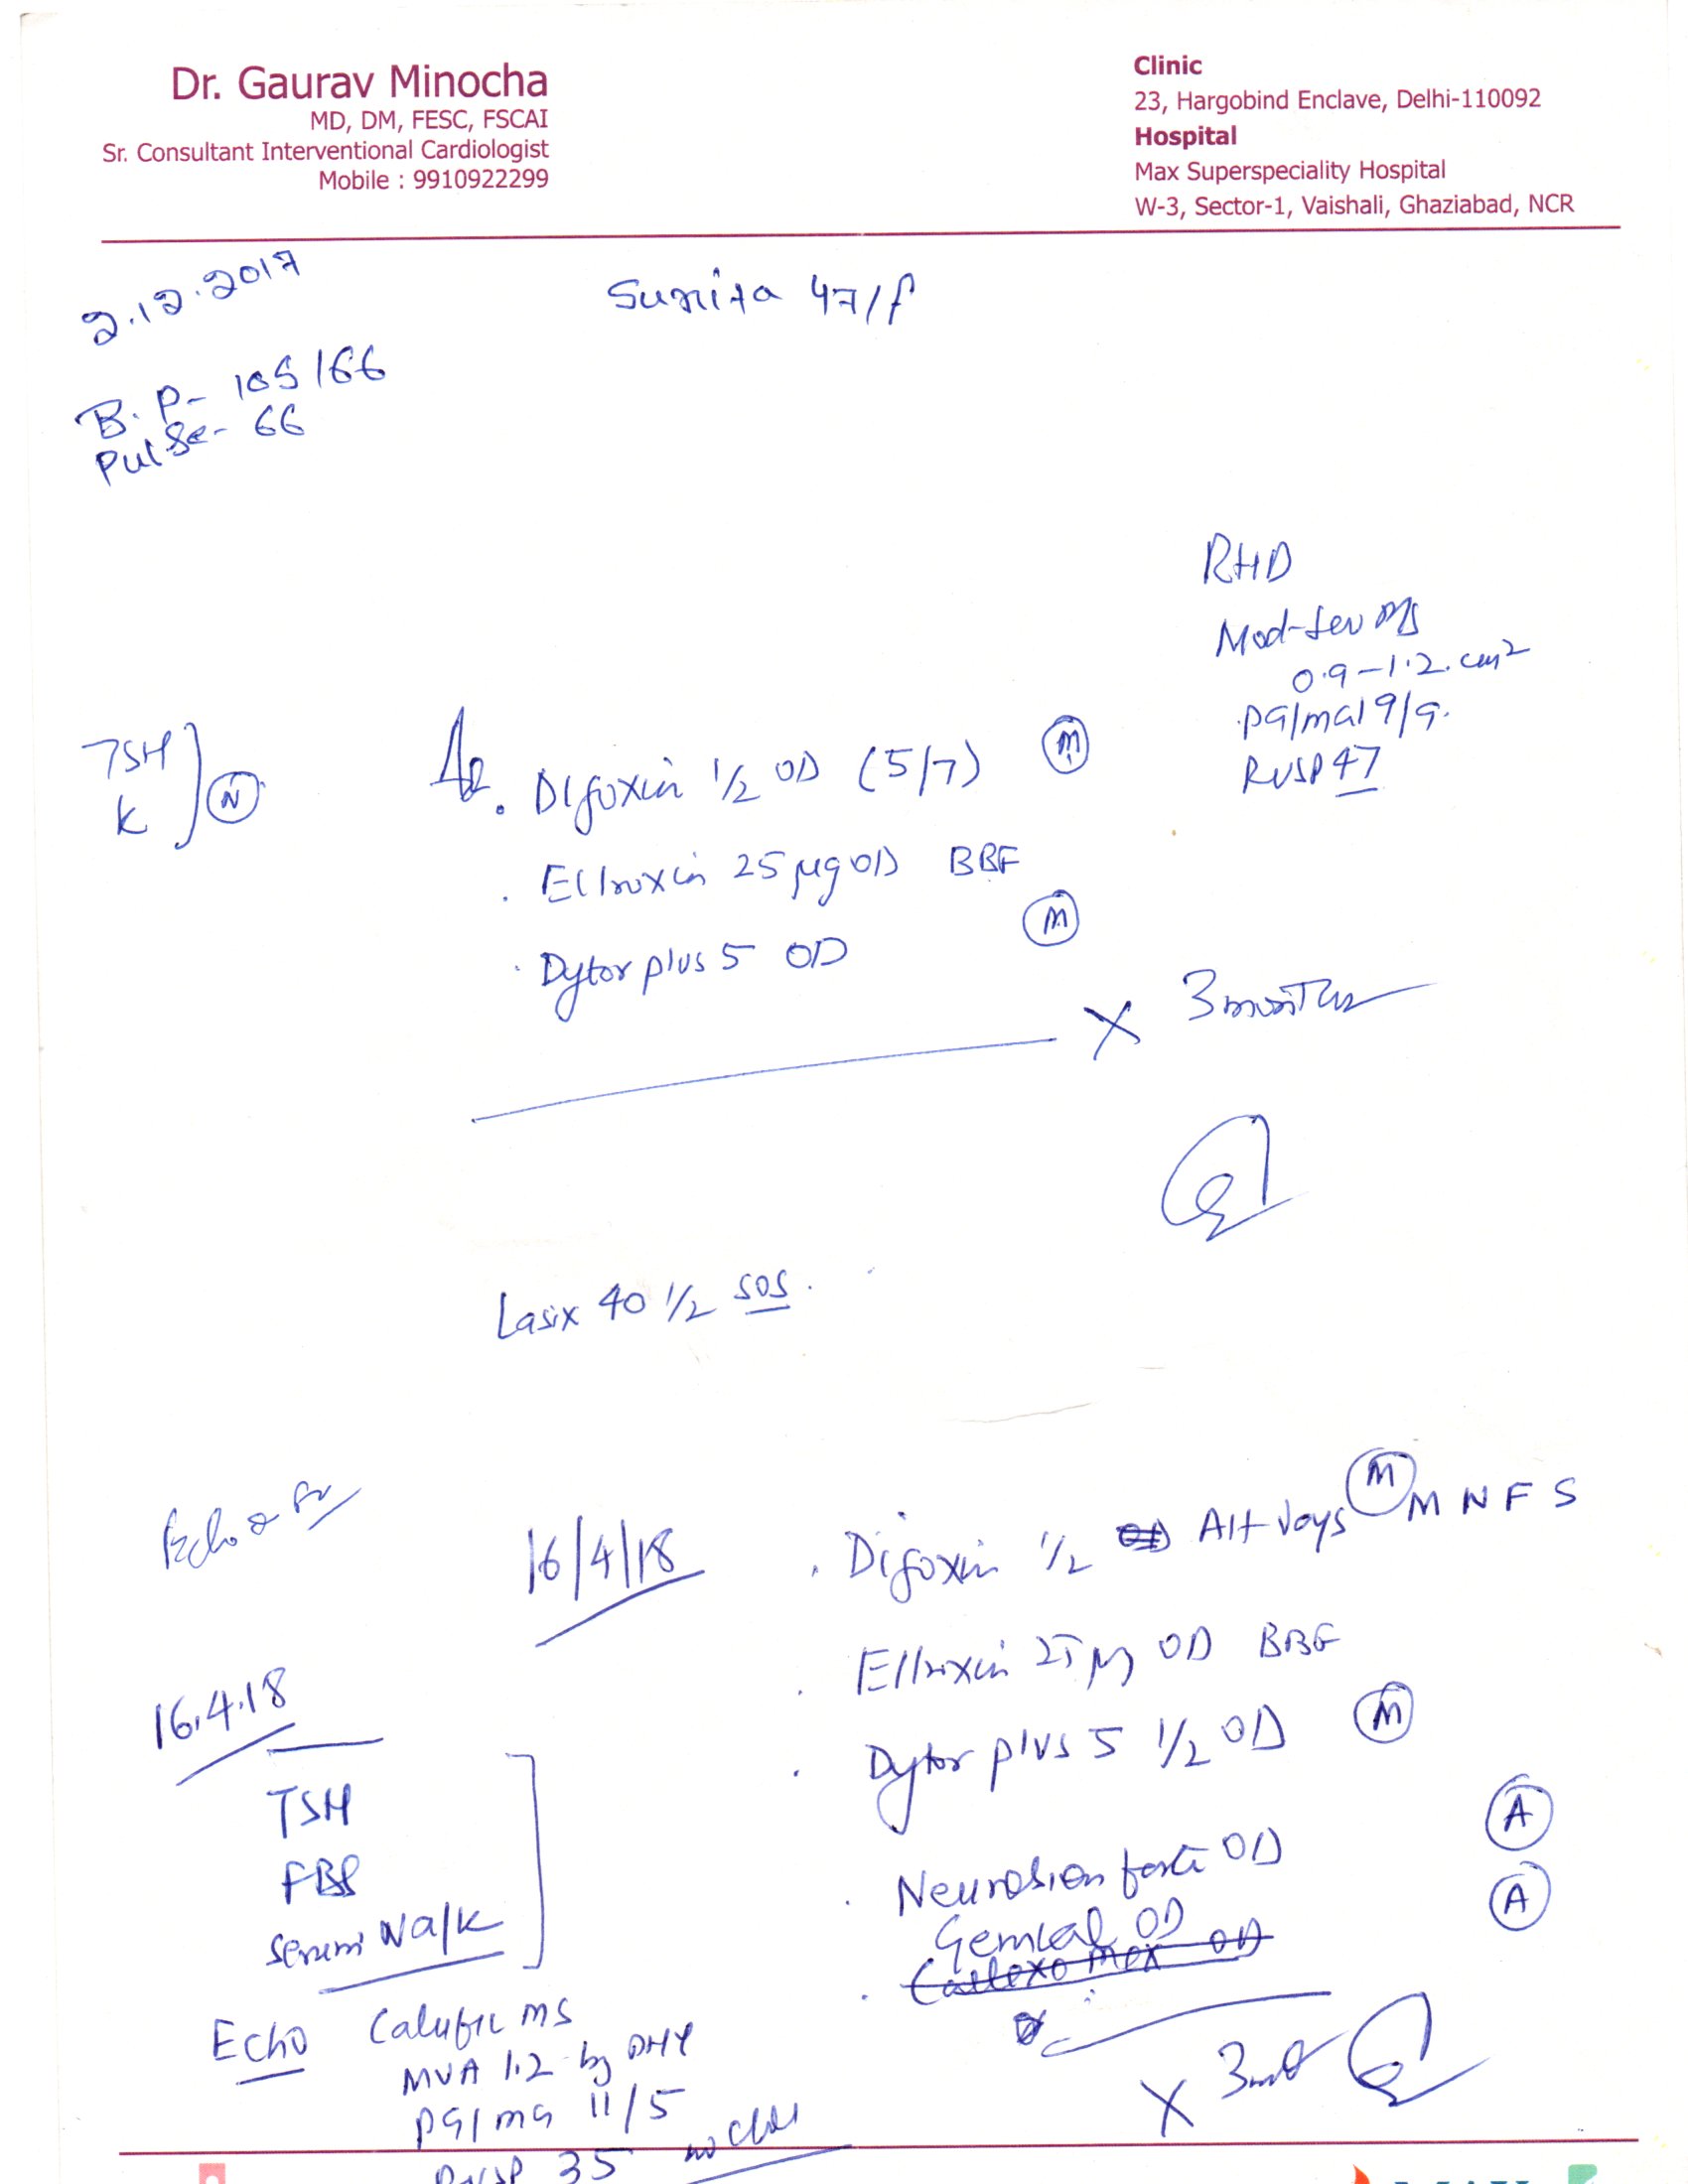 Dr. Gaurav Minocha
MD, DM, FESC, FSCAI
Sr. Consultant Interventional Cardiologist
Mobile : 9910922299
Clinic
23, Hargobind Enclave, Delhi-110092
Hospital
Max Superspeciality Hospital
W-3, Sector-1, Vaishali, Ghaziabad, NCR
2.12.2017
Sunita 47/f
B.P- 105/66
Pulse- 66
RHD
Mod-sev MS
0.9-1.2 cm2
PG/MG 19/9.
RVSP 47
TSH
K
N
Digoxin 1/2 OD (5/7) M
Eltroxin 25 µg OD BBF
Dytor plus 5 OD M
X 3 months
Lasix 40 1/2 SOS.
Echo
16/4/18
Digoxin 1/2 OD Alt days M M N F S
Eltroxin 25 µg OD BBF
Dytor plus 5 1/2 OD M
Neurobion forte OD A
Gemcal OD A
OD
X 3
16.4.18
TSH
FBS
Serum Na/K
Echo Calcific MS
MVA 1.2 by
PG/MG 11/5
RVSP 35 no